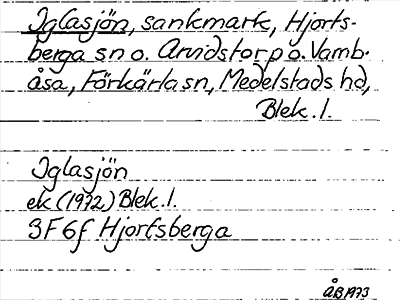 Iglasjön, sankmark, Hjorts-
berga sn o. Arvidstorp o. Vamb-
åsa, Förkärla sn, Medelstads hd,
Blek. l.
Iglasjön
ek (1972) Blek. l.
3F6f Hjortsberga
ÅB 1973